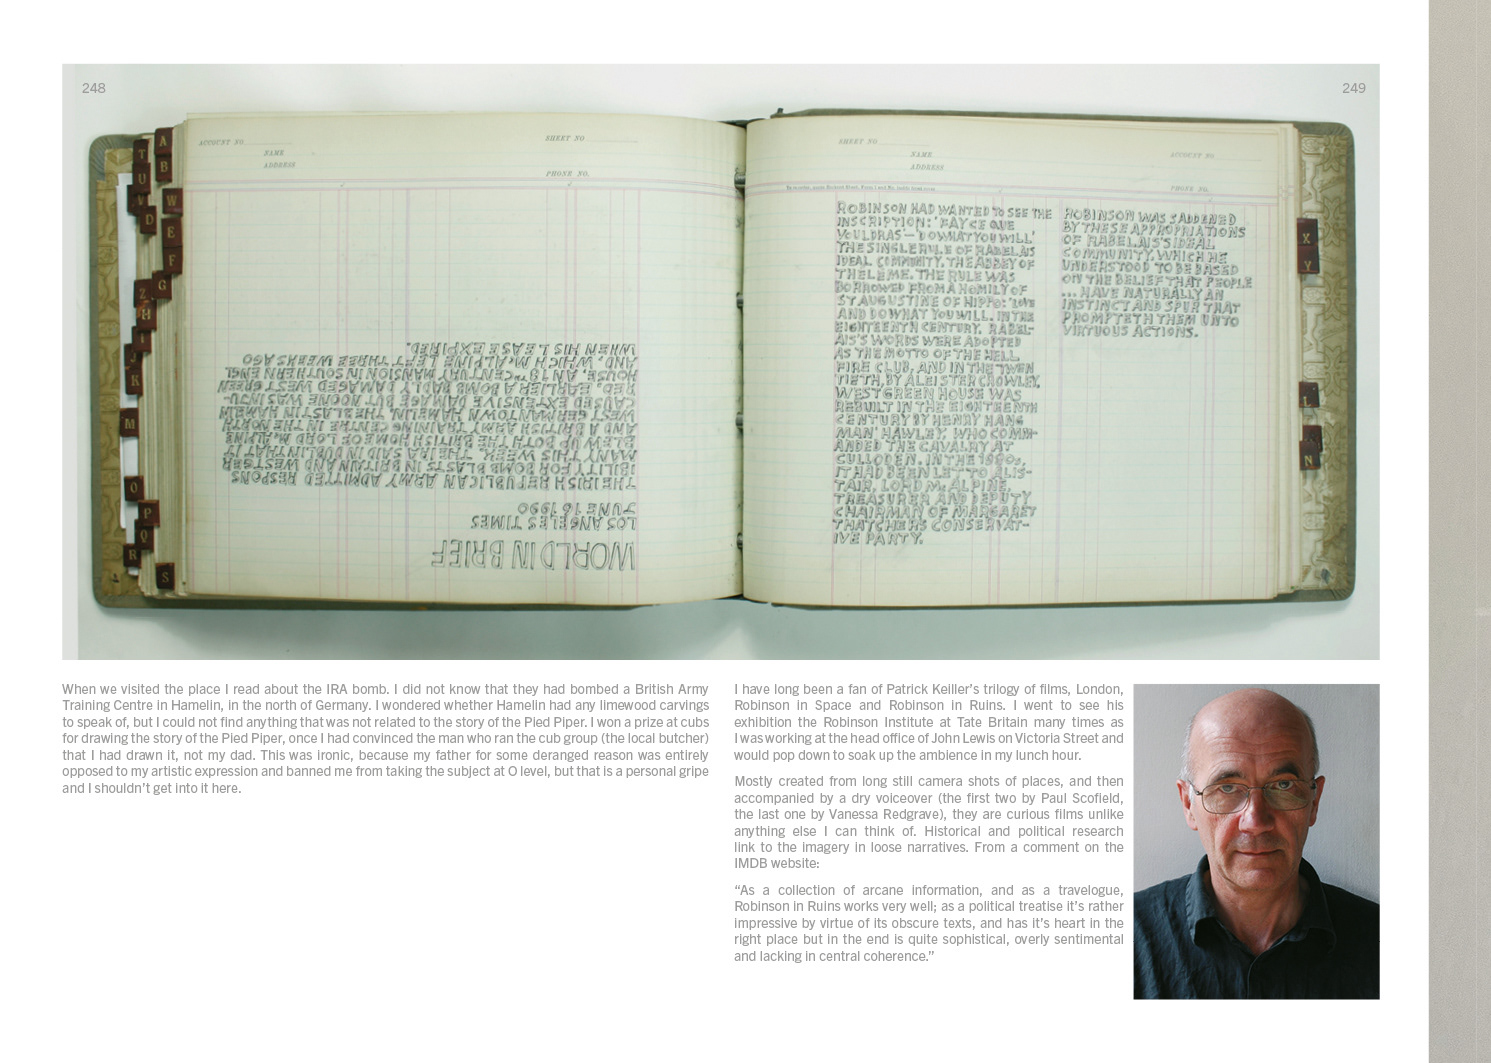 248
249
ACCOUNT NO.
SHEET NO
NAME
ADDRESS
PHONE NO.
SHEET NO
ACCOUNT NO
NAME
ADDRESS
PHONE NO.
A
T
B
U
V
W
D
E
F
G
Z
H
I
J
K
M
O
P
Q
R
S
X
Y
L
N
WORLD IN BRIEF
LOS ANGELES TIMES
JUNE 16 1990
THE IRISH REPUBLICAN ARMY ADMITTED RESPONS
IBILITY FOR BOMB BLASTS IN BRITAIN AND WEST GER
MANY THIS WEEK. THE IRA SAID IN DUBLIN THAT IT
BLEW UP BOTH THE BRITISH HOME OF LORD McALPINE
AND A BRITISH ARMY TRAINING CENTRE IN THE NORTH
WEST GERMAN TOWN HAMELIN. THE BLAST IN HAMELIN
CAUSED EXTENSIVE DAMAGE BUT NOONE WAS INJU-
RED. EARLIER A BOMB BADLY DAMAGED WEST GREEN
HOUSE, AN 18TH CENTURY MANSION IN SOUTHERN ENGL
AND, WHICH McALPINE LEFT THREE WEEKS AGO
WHEN HIS LEASE EXPIRED.
ROBINSON HAD WANTED TO SEE THE
INSCRIPTION: 'FAY CE QUE
VOULDRAS' – 'DO WHAT YOU WILL'
THE SINGLE RULE OF RABELAIS
IDEAL COMMUNITY, THE ABBEY OF
THELEME. THE RULE WAS
BORROWED FROM A HOMILY OF
ST AUGUSTINE OF HIPPO: 'LOVE
AND DO WHAT YOU WILL. IN THE
EIGHTEENTH CENTURY, RABEL-
AIS'S WORDS WERE ADOPTED
AS THE MOTTO OF THE HELL
FIRE CLUB, AND IN THE TWEN
TIETH, BY ALEISTER CROWLEY.
WEST GREEN HOUSE WAS
REBUILT IN THE EIGHTEENTH
CENTURY BY HENRY 'HANG
MAN' HAWLEY, WHO COMM-
ANDED THE CAVALRY AT
CULLODEN. IN THE 1980s,
IT HAD BEEN LET TO ALIS-
TAIR, LORD McALPINE,
TREASURER AND DEPUTY
CHAIRMAN OF MARGARET
THATCHERS CONSERVAT-
IVE PARTY.
ROBINSON WAS SADDENED
BY THESE APPROPRIATIONS
OF RABELAIS'S IDEAL
COMMUNITY, WHICH HE
UNDERSTOOD TO BE BASED
ON THE BELIEF THAT PEOPLE
... HAVE NATURALLY AN
INSTINCT AND SPUR THAT
PROMPTETH THEM UNTO
VIRTUOUS ACTIONS.
When we visited the place I read about the IRA bomb. I did not know that they had bombed a British Army
Training Centre in Hamelin, in the north of Germany. I wondered whether Hamelin had any limewood carvings
to speak of, but I could not find anything that was not related to the story of the Pied Piper. I won a prize at cubs
for drawing the story of the Pied Piper, once I had convinced the man who ran the cub group (the local butcher)
that I had drawn it, not my dad. This was ironic, because my father for some deranged reason was entirely
opposed to my artistic expression and banned me from taking the subject at O level, but that is a personal gripe
and I shouldn't get into it here.
I have long been a fan of Patrick Keiller's trilogy of films, London,
Robinson in Space and Robinson in Ruins. I went to see his
exhibition the Robinson Institute at Tate Britain many times as
I was working at the head office of John Lewis on Victoria Street and
would pop down to soak up the ambience in my lunch hour.
Mostly created from long still camera shots of places, and then
accompanied by a dry voiceover (the first two by Paul Scofield,
the last one by Vanessa Redgrave), they are curious films unlike
anything else I can think of. Historical and political research
link to the imagery in loose narratives. From a comment on the
IMDB website:
“As a collection of arcane information, and as a travelogue,
Robinson in Ruins works very well; as a political treatise it's rather
impressive by virtue of its obscure texts, and has it's heart in the
right place but in the end is quite sophistical, overly sentimental
and lacking in central coherence.”